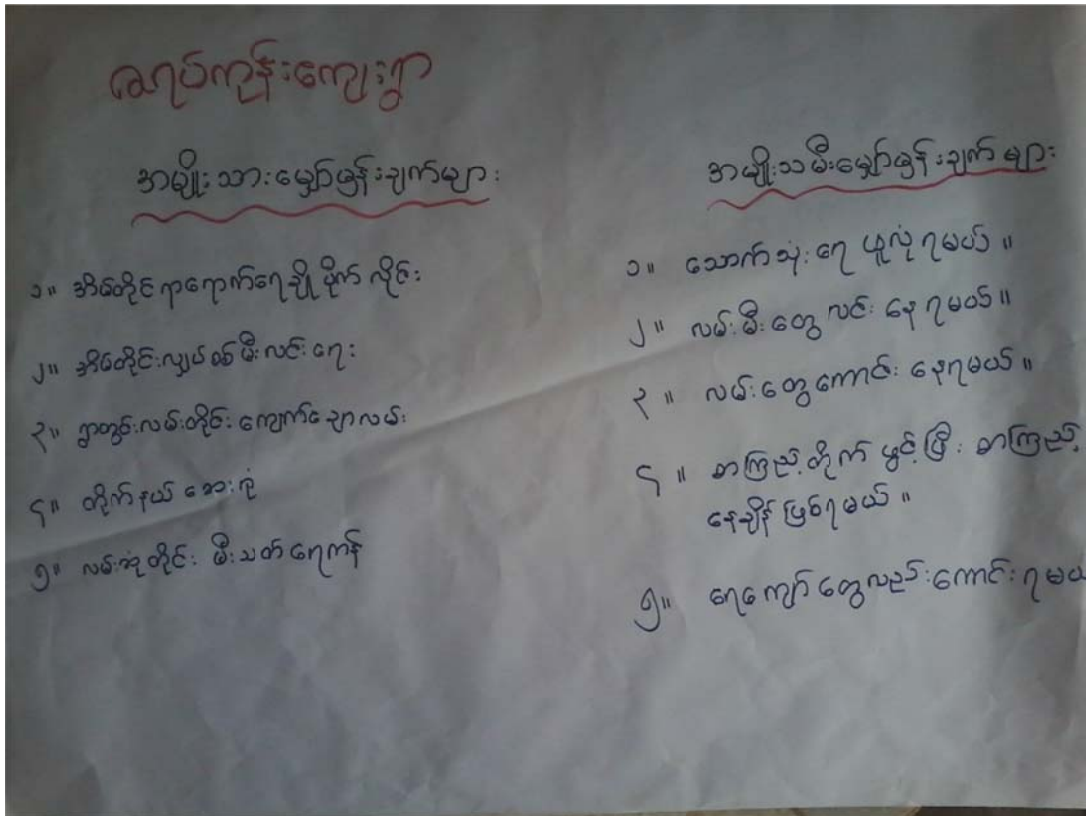 ဇရပ်ကုန်းကျေးရွာ
အမျိုးသားမျှော်မှန်းချက်များ
၁။ အိမ်တိုင်ရာရောက်ရေချိုပိုက်လိုင်း
၂။ အိမ်တိုင်းလျှပ်စစ်မီးလင်းရေး
၃။ ရွာတွင်းလမ်းတိုင်း ကျောက်ချောလမ်း
၄။ တိုက်နယ်ဆေးရုံ
၅။ လမ်းဆုံတိုင်း မီးသတ်ရေကန်
အမျိုးသမီးမျှော်မှန်းချက်များ
၁။ သောက်သုံးရေ ဖူလုံရမယ်။
၂။ လမ်းမီးတွေ လင်းနေရမယ်။
၃။ လမ်းတွေကောင်းနေရမယ်။
၄။ စာကြည့်တိုက် ဖွင့်ပြီး စာကြည့်
နေချိန်ဖြစ်ရမယ်။
၅။ ရေကျော်တွေလည်းကောင်းရမယ်